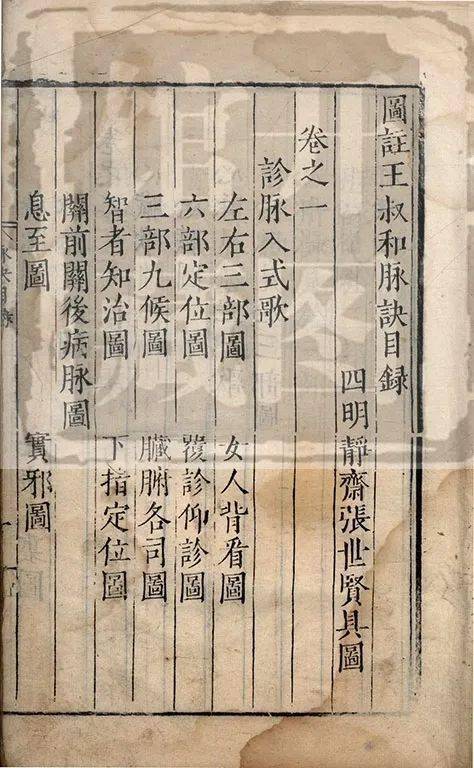 圖註王叔和脉訣目録
四明靜齋張世賢具圖
卷之一
診脉入式歌
左右三部圖 女人背看圖
六部定位圖 覆診仰診圖
三部九候圖 臟腑各司圖
智者知治圖 下指定位圖
關前關後病脉圖
息至圖 實邪圖